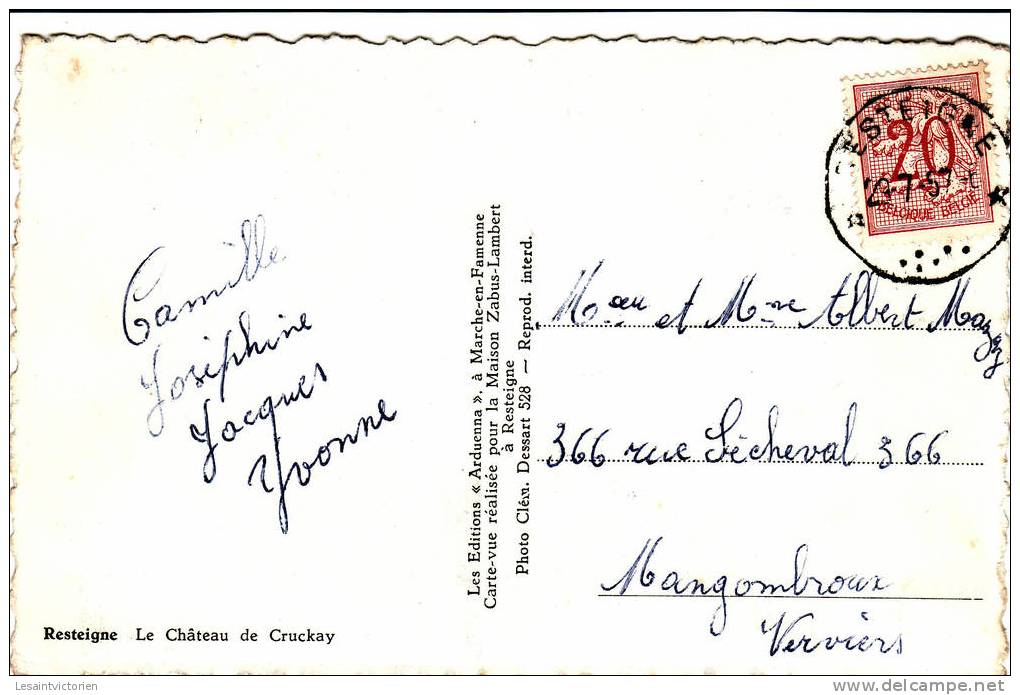 RESTEIGNE
20
29-7-57
BELGIQUE BELGIE
Camille
Joséphine
Jacques
Yvonne
Les Editions « Arduenna ». à Marche-en-Famenne
Carte-vue réalisée pour la Maison Zabus-Lambert
à Resteigne
Photo Clém. Dessart 528 — Reprod. interd.
et Mme Albert
366 rue Sècheval 366
Mangombroux
Verviers
Resteigne Le Château de Cruckay
Lesaintvictorien
www.delcampe.net